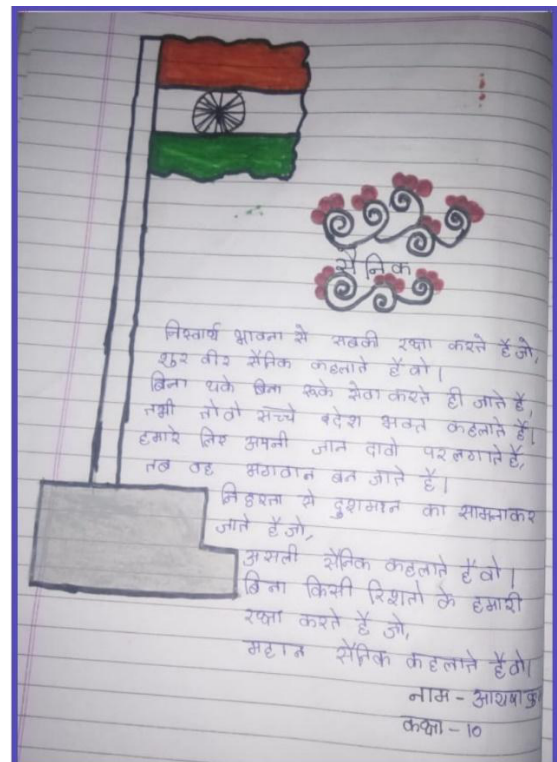 सैनिक
निस्वार्थ भावना से सबकी रक्षा करते है जो,
शुर वीर सैनिक कहलाते है वो।
बिना थके बिना रूके सेवा करते ही जाते है,
तभी तो वो सच्चे देश भक्त कहलाते है।
हमारे लिए अपनी जान दावो पर लगाते है,
तब वह भगवान बन जाते है।
निडरता से दुशमान का सामनाकर
जाते है जो,
असली सैनिक कहलाते है वो।
बिना किसी रिशतो के हमारी
रक्षा करते है जो,
महान सैनिक कहलाते है वो।
नाम -
कक्षा - 10